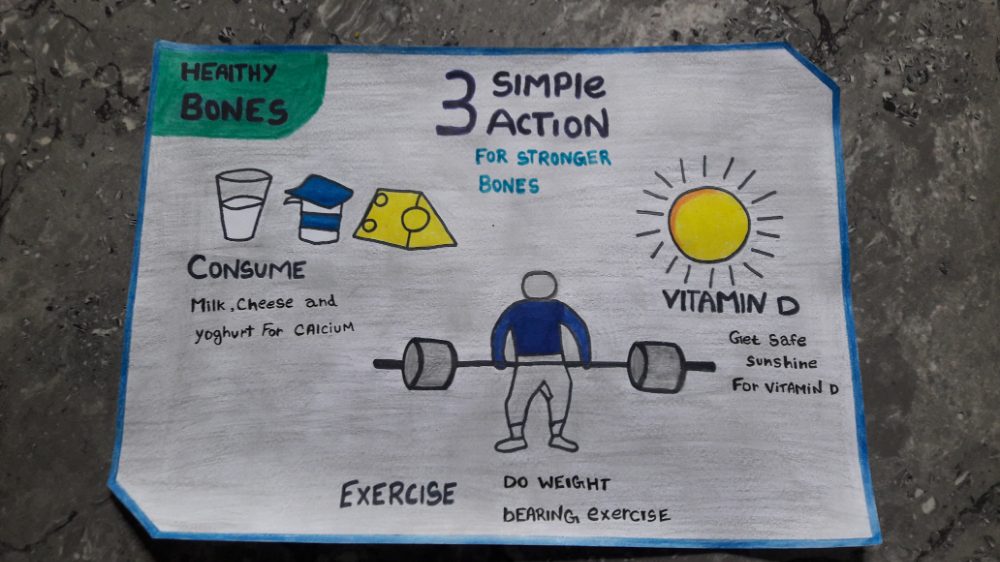 HEAlTHY
BONES
3 SIMPle
ACTION
FOR STRONGER
BONES
CONSUME
Milk, Cheese and
yoghurt For CAlciuM
VITAMIN D
Get Safe
Sunshine
For ViTAMiN D
EXERCISE
DO WEIGHT
bEARING exerciSE